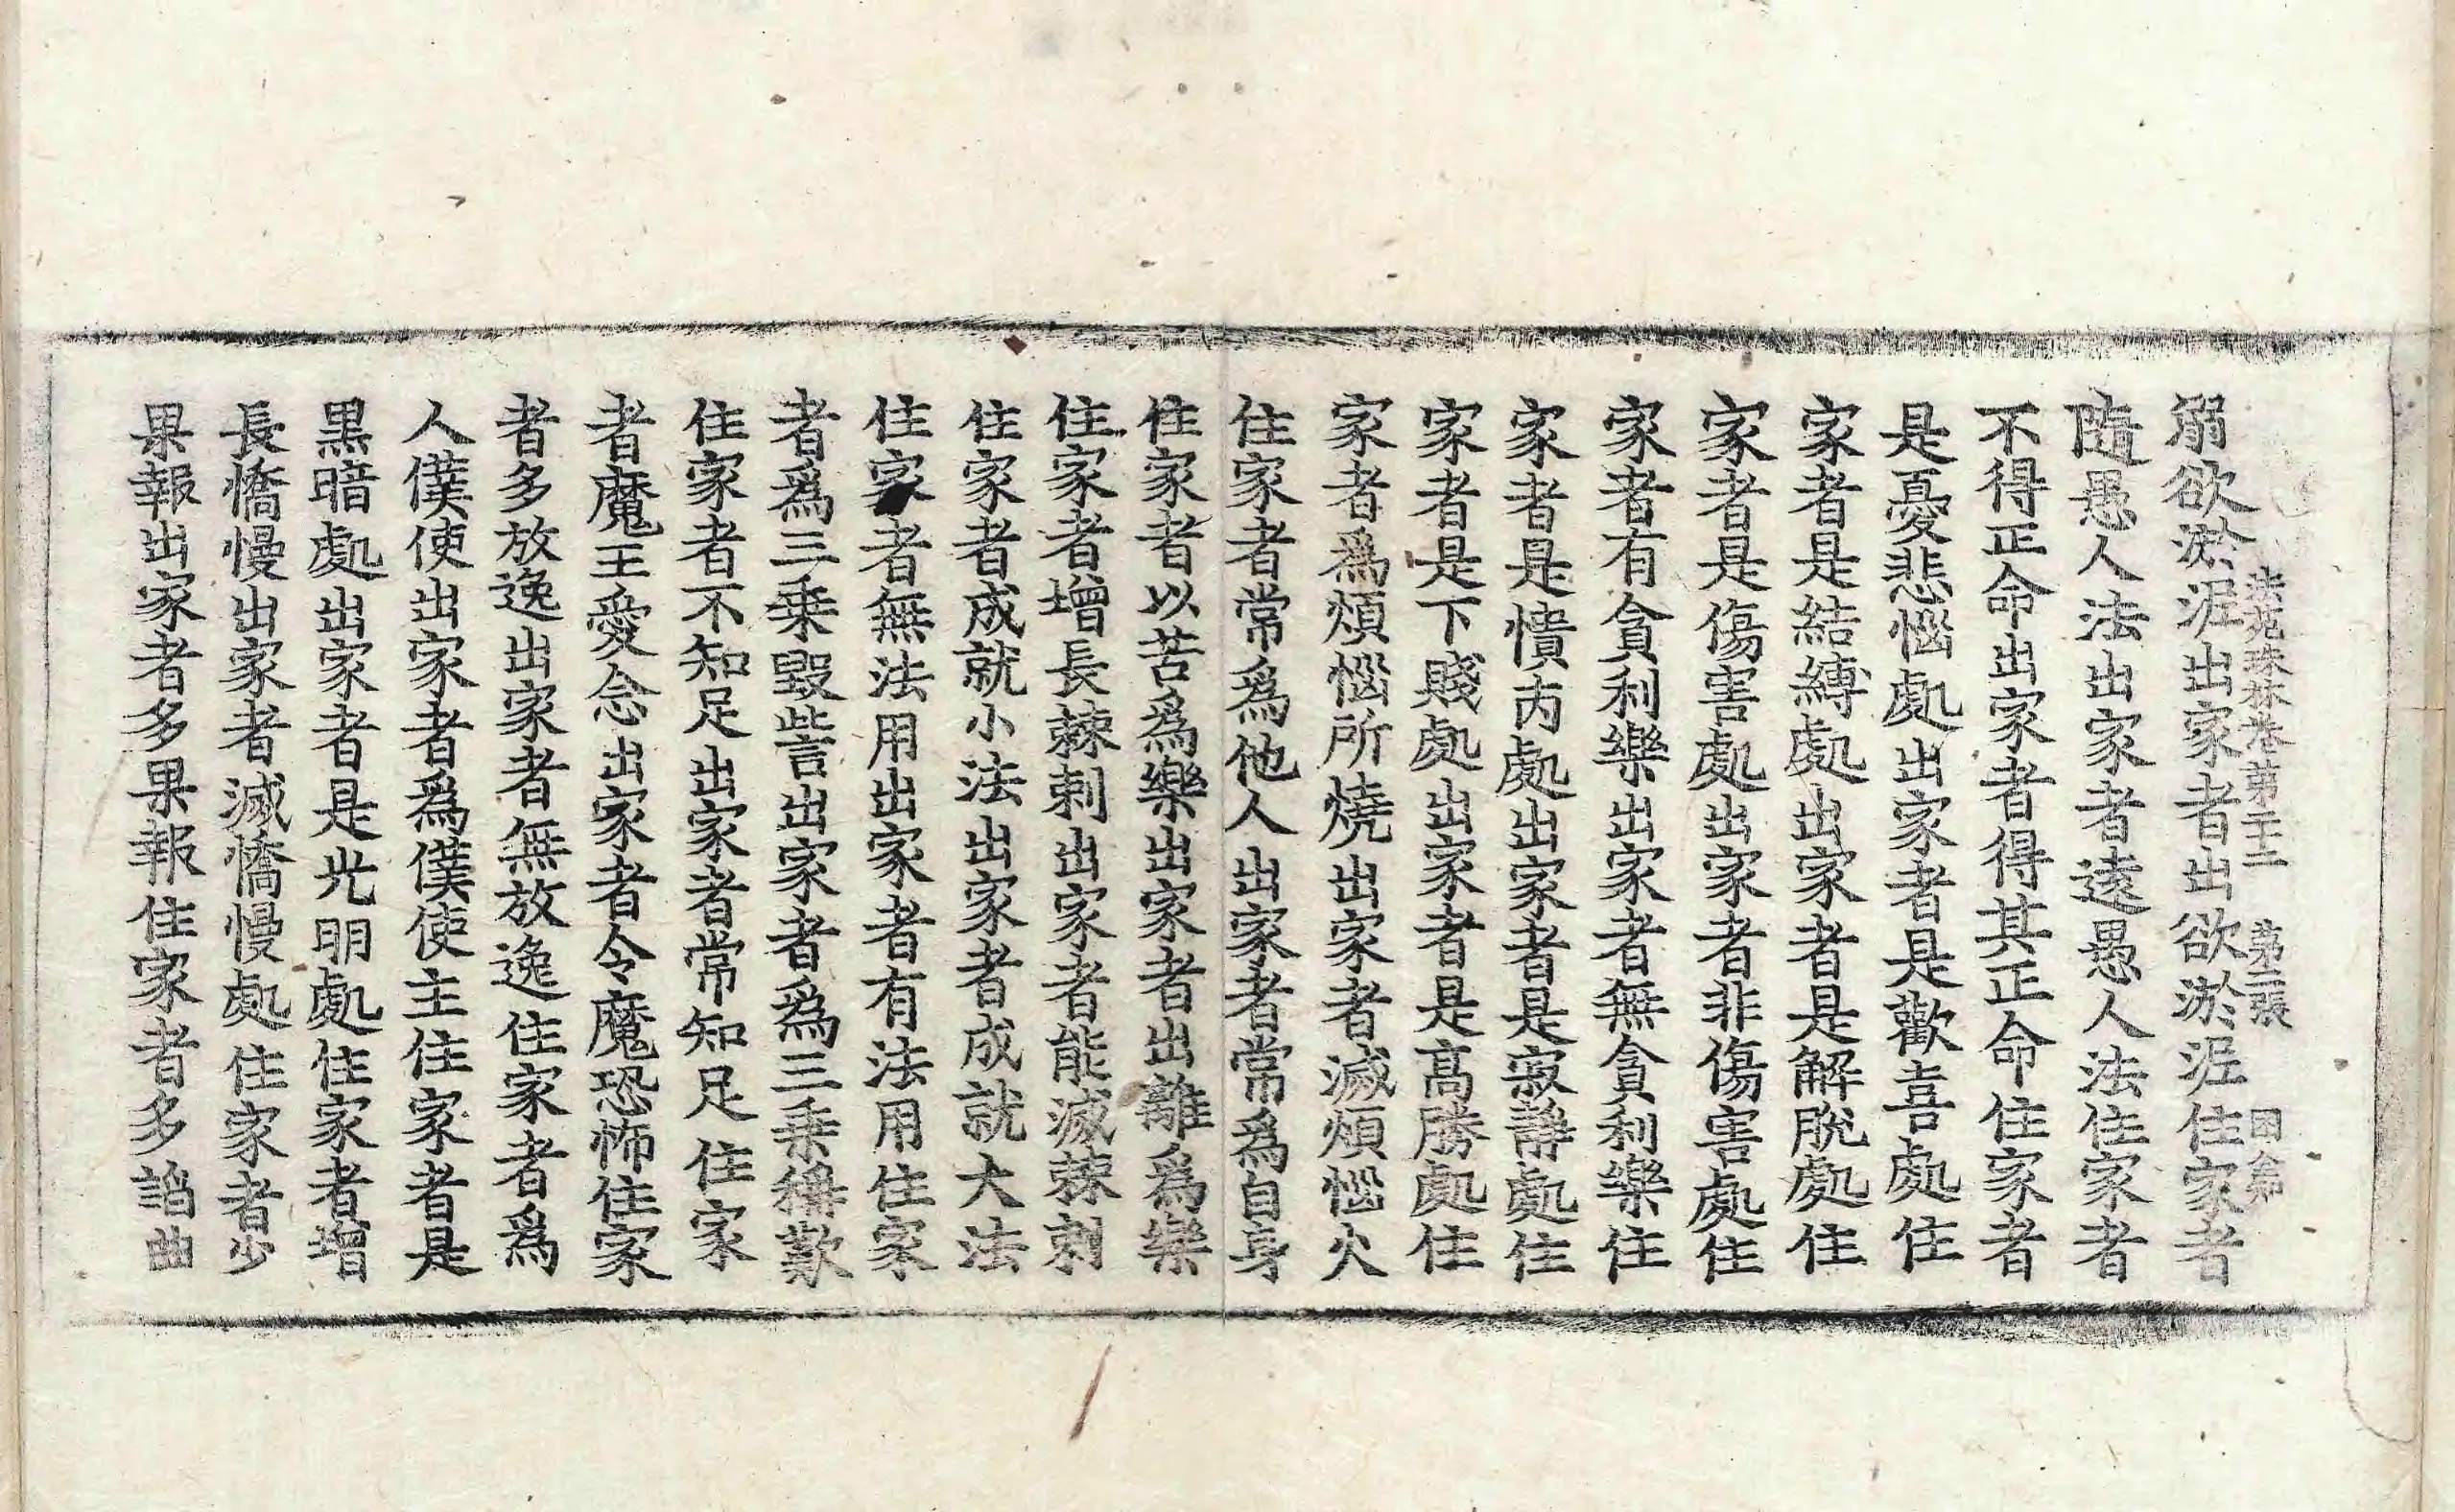 法苑珠林卷第二十二 第三張 困
溺欲淤泥出家者出欲淤泥住家者
隨愚人法出家者遠愚人法住家者
不得正命出家者得其正命住家者
是憂悲惱處出家者是歡喜處住
家者是結縛處出家者是解脫處住
家者是傷害處出家者非傷害處住
家者有貪利樂出家者無貪利樂住
家者是憒內處出家者是寂靜處住
家者是下賤處出家者是髙勝處住
家者爲煩惱所燒出家者滅煩惱火
住家者常爲他人出家者常爲自身
住家者以苦爲樂出家者出離爲樂
住家者增長棘刺出家者能滅棘刺
住家者成就小法出家者成就大法
住家者無法用出家者有法用住家
者爲三乗毀訾出家者爲三乗稱歎
住家者不知足出家者常知足住家
者魔王愛念出家者令魔恐怖住家
者多放逸出家者無放逸住家者爲
人僕使出家者爲僕使主住家者是
黒暗處出家者是光明處住家者增
長憍慢出家者滅憍慢處住家者少
果報出家者多果報住家者多謟曲